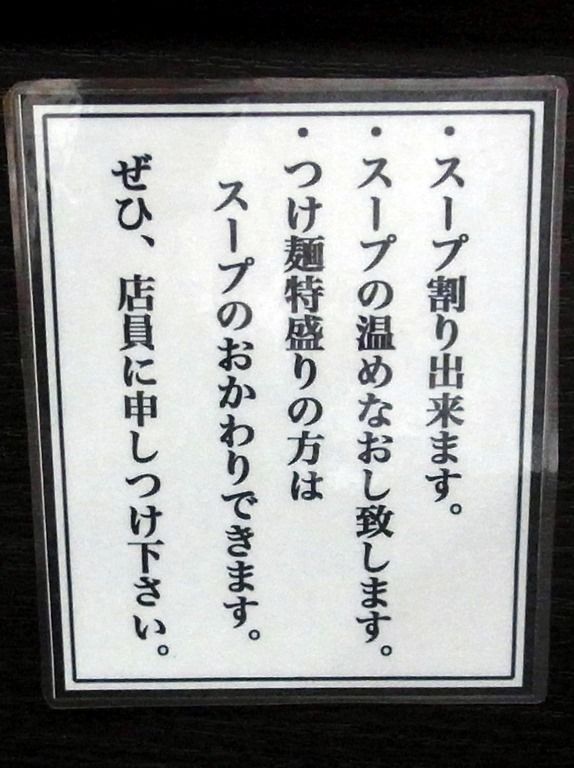 ・スープ割り出来ます。
・スープの温めなおし致します。
・つけ麺特盛りの方は
スープのおかわりできます。
ぜひ、店員に申しつけ下さい。